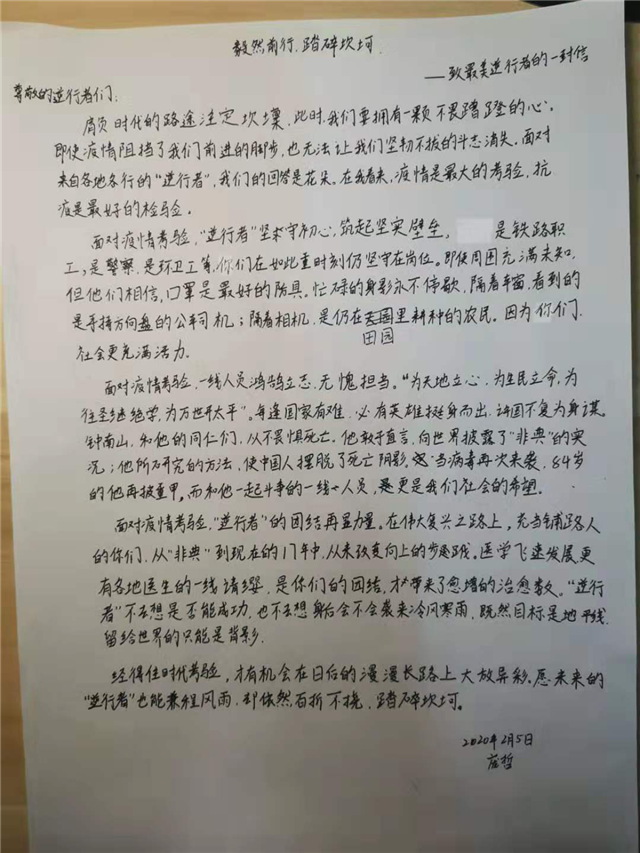 毅然前行，踏碎坎坷
——致最美逆行者的一封信
尊敬的逆行者们：
肩负时代的路途注定坎壈，此时，我们要拥有一颗不畏蹭蹬的心。
即使疫情阻挡了我们前进的脚步，也无法让我们坚韧不拔的斗志消失。面对
来自各地各行的“逆行者”，我们的回答是花朵。在我看来，疫情是最大的考验，抗
疫是最好的检验。
面对疫情考验，“逆行者”坚守初心，筑起坚实壁垒。是铁路职
工，是警察，是环卫工等，你们在如此重时刻仍坚守在岗位。即使周围充满未知，
但他们相信，口罩是最好的防具。忙碌的身影永不停歇，隔着车窗，看到的
是手持方向盘的公车司机；隔着相机，是仍在里耕种的农民。因为你们，
田园
社会更充满活力。
面对疫情考验，一线人员鸿鹄立志，无愧担当。“为天地立心，为生民立命，为
往圣继绝学，为万世开太平”。每逢国家有难，必有英雄挺身而出，许国不复为身谋。
钟南山，和他的同仁们，从不畏惧死亡。他敢于直言，向世界披露了“非典”的实
况；他所研究的方法，使中国人摆脱了死亡阴影，当病毒再次来袭，84岁
的他再披重甲，而和他一起斗争的一线人员，更是我们社会的希望。
面对疫情考验，“逆行者”的团结再显力量。在伟大复兴之路上，充当铺路人
的你们，从“非典”到现在的17年中，从未改变向上的步态。医学飞速发展，更
有各地医生的一线请缨，是你们的团结，才带来了愈增的治愈数。“逆行
者”不去想是否能成功，也不去想身后会不会袭来冷风寒雨，既然目标是地平线，
留给世界的只能是背影。
经得住时代考验，才有机会在日后的漫漫长路上大放异彩。愿未来的
“逆行者”也能兼程风雨，却依然百折不挠，踏碎坎坷。
2020年2月5日